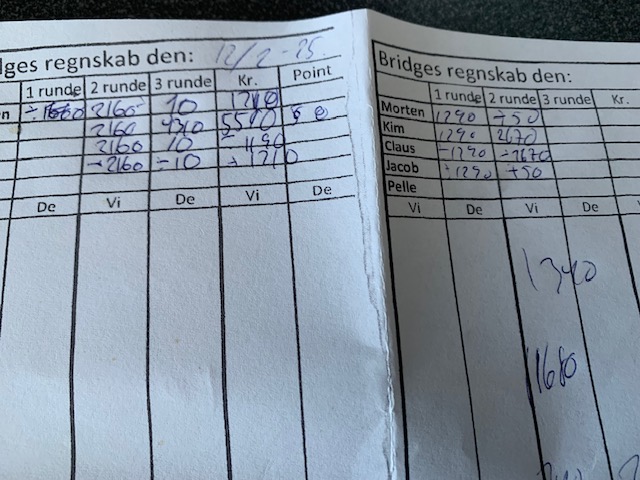 lges regnskab den: 12/2-25
1 runde 2 runde 3 runde Kr. Point
n ÷1660 2160 10
2160 4340
2160 10 ÷1190
÷2160 ÷10 ÷1210
De Vi De Vi De
Bridges regnskab den:
1 runde 2 runde 3 runde Kr.
Morten 1290 ÷50
Kim 1290 2670
Claus ÷1290 ÷2670
Jacob ÷1290 +50
Pelle
Vi De Vi De V
1340
1680